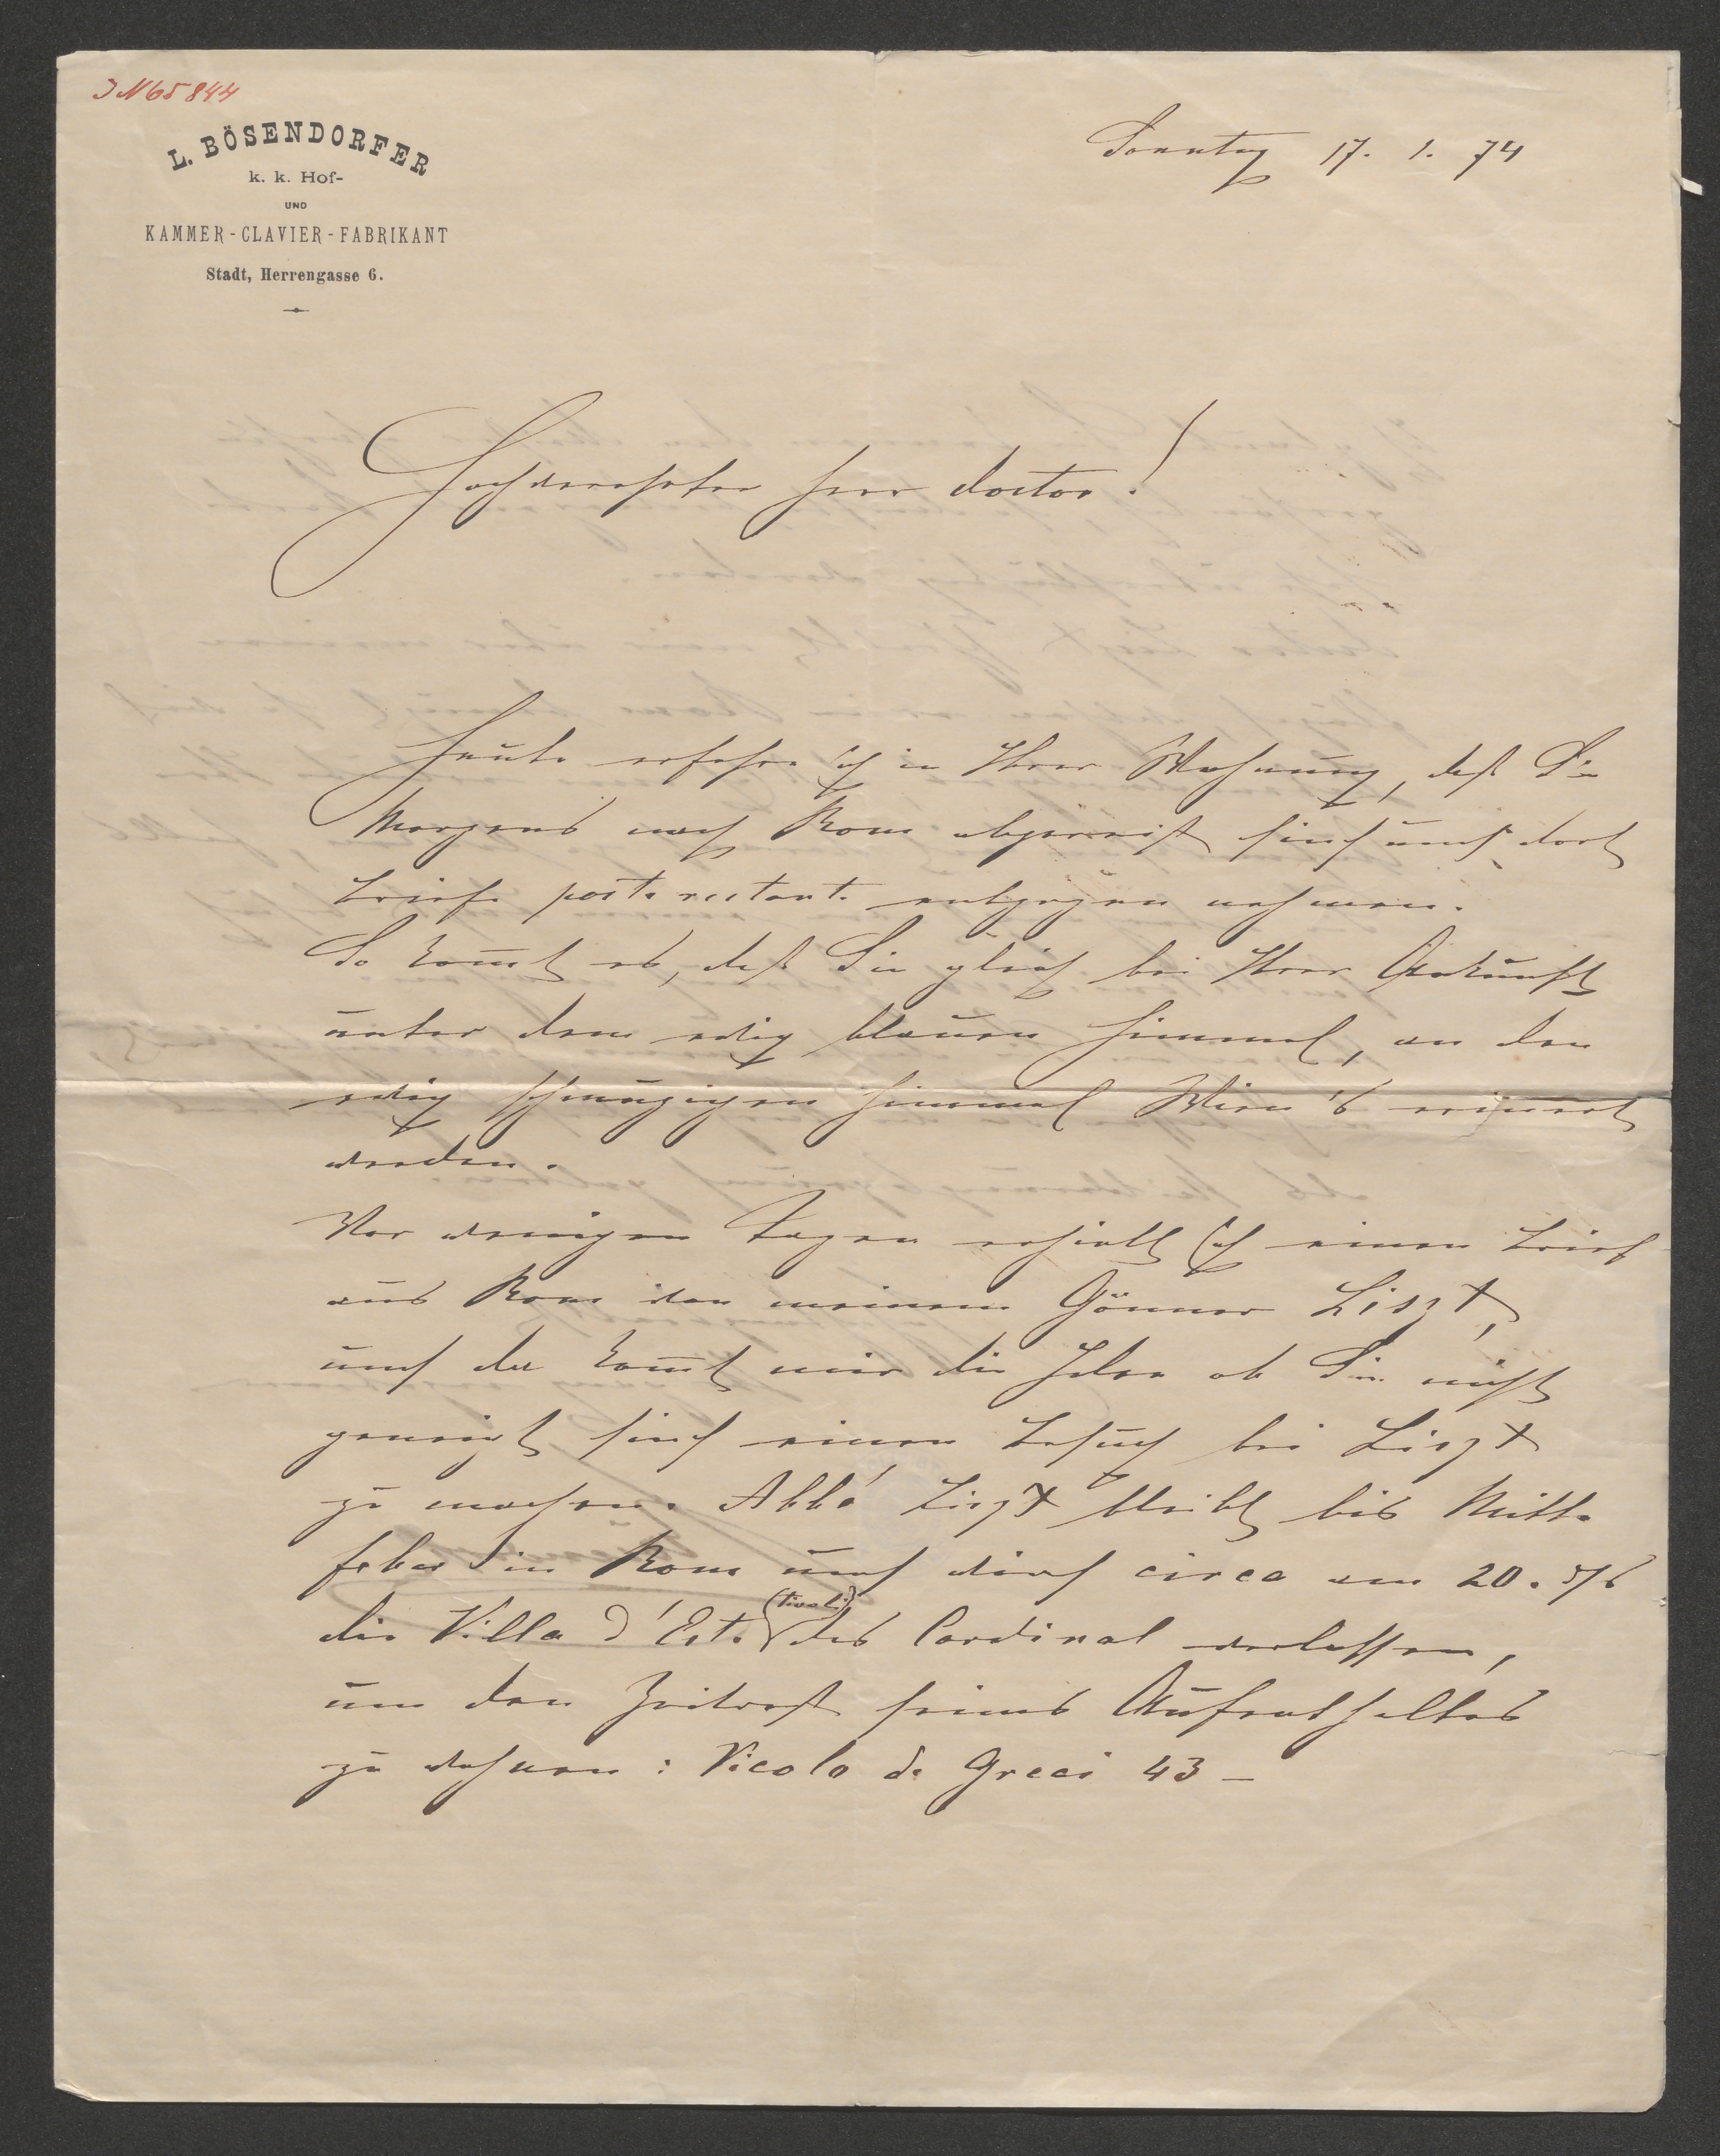 JN 65844
L. BÖSENDORFER
k. k. Hof-
UND
KAMMER-CLAVIER-FABRIKANT
Stadt, Herrengasse 6.
Sonntag 17. 1. 74
Hochverehrter Herr Doctor!
Heute erfahre ich in Ihrer Wohnung, daß Sie
Morgens nach Rom abgereist sind und dort
Briefe poste restante entgegen nehmen.
So kom̄t es, daß Sie gleich bei Ihrer Ankunft
unter dem ewig blauen Himmel, an den
ewig schmuzigen Himmel Wien's erinnert
werden.
Vor wenigen Tagen erhielt ich einen Brief
aus Rom von meinem Gönner Liszt,
und da kom̄t mir die Idee ob Sie nicht
geneigt sind einen Besuch bei Liszt
zu machen. Abbé Liszt bleibt bis Mitte
Feber in Rom und wird circa am 20. d/s
die Villa d'Este (Tivoli) des Cardinal verlassen,
um den Zeitrest seines Aufenthaltes
zu wohnen: Vicolo de Greci 43 –